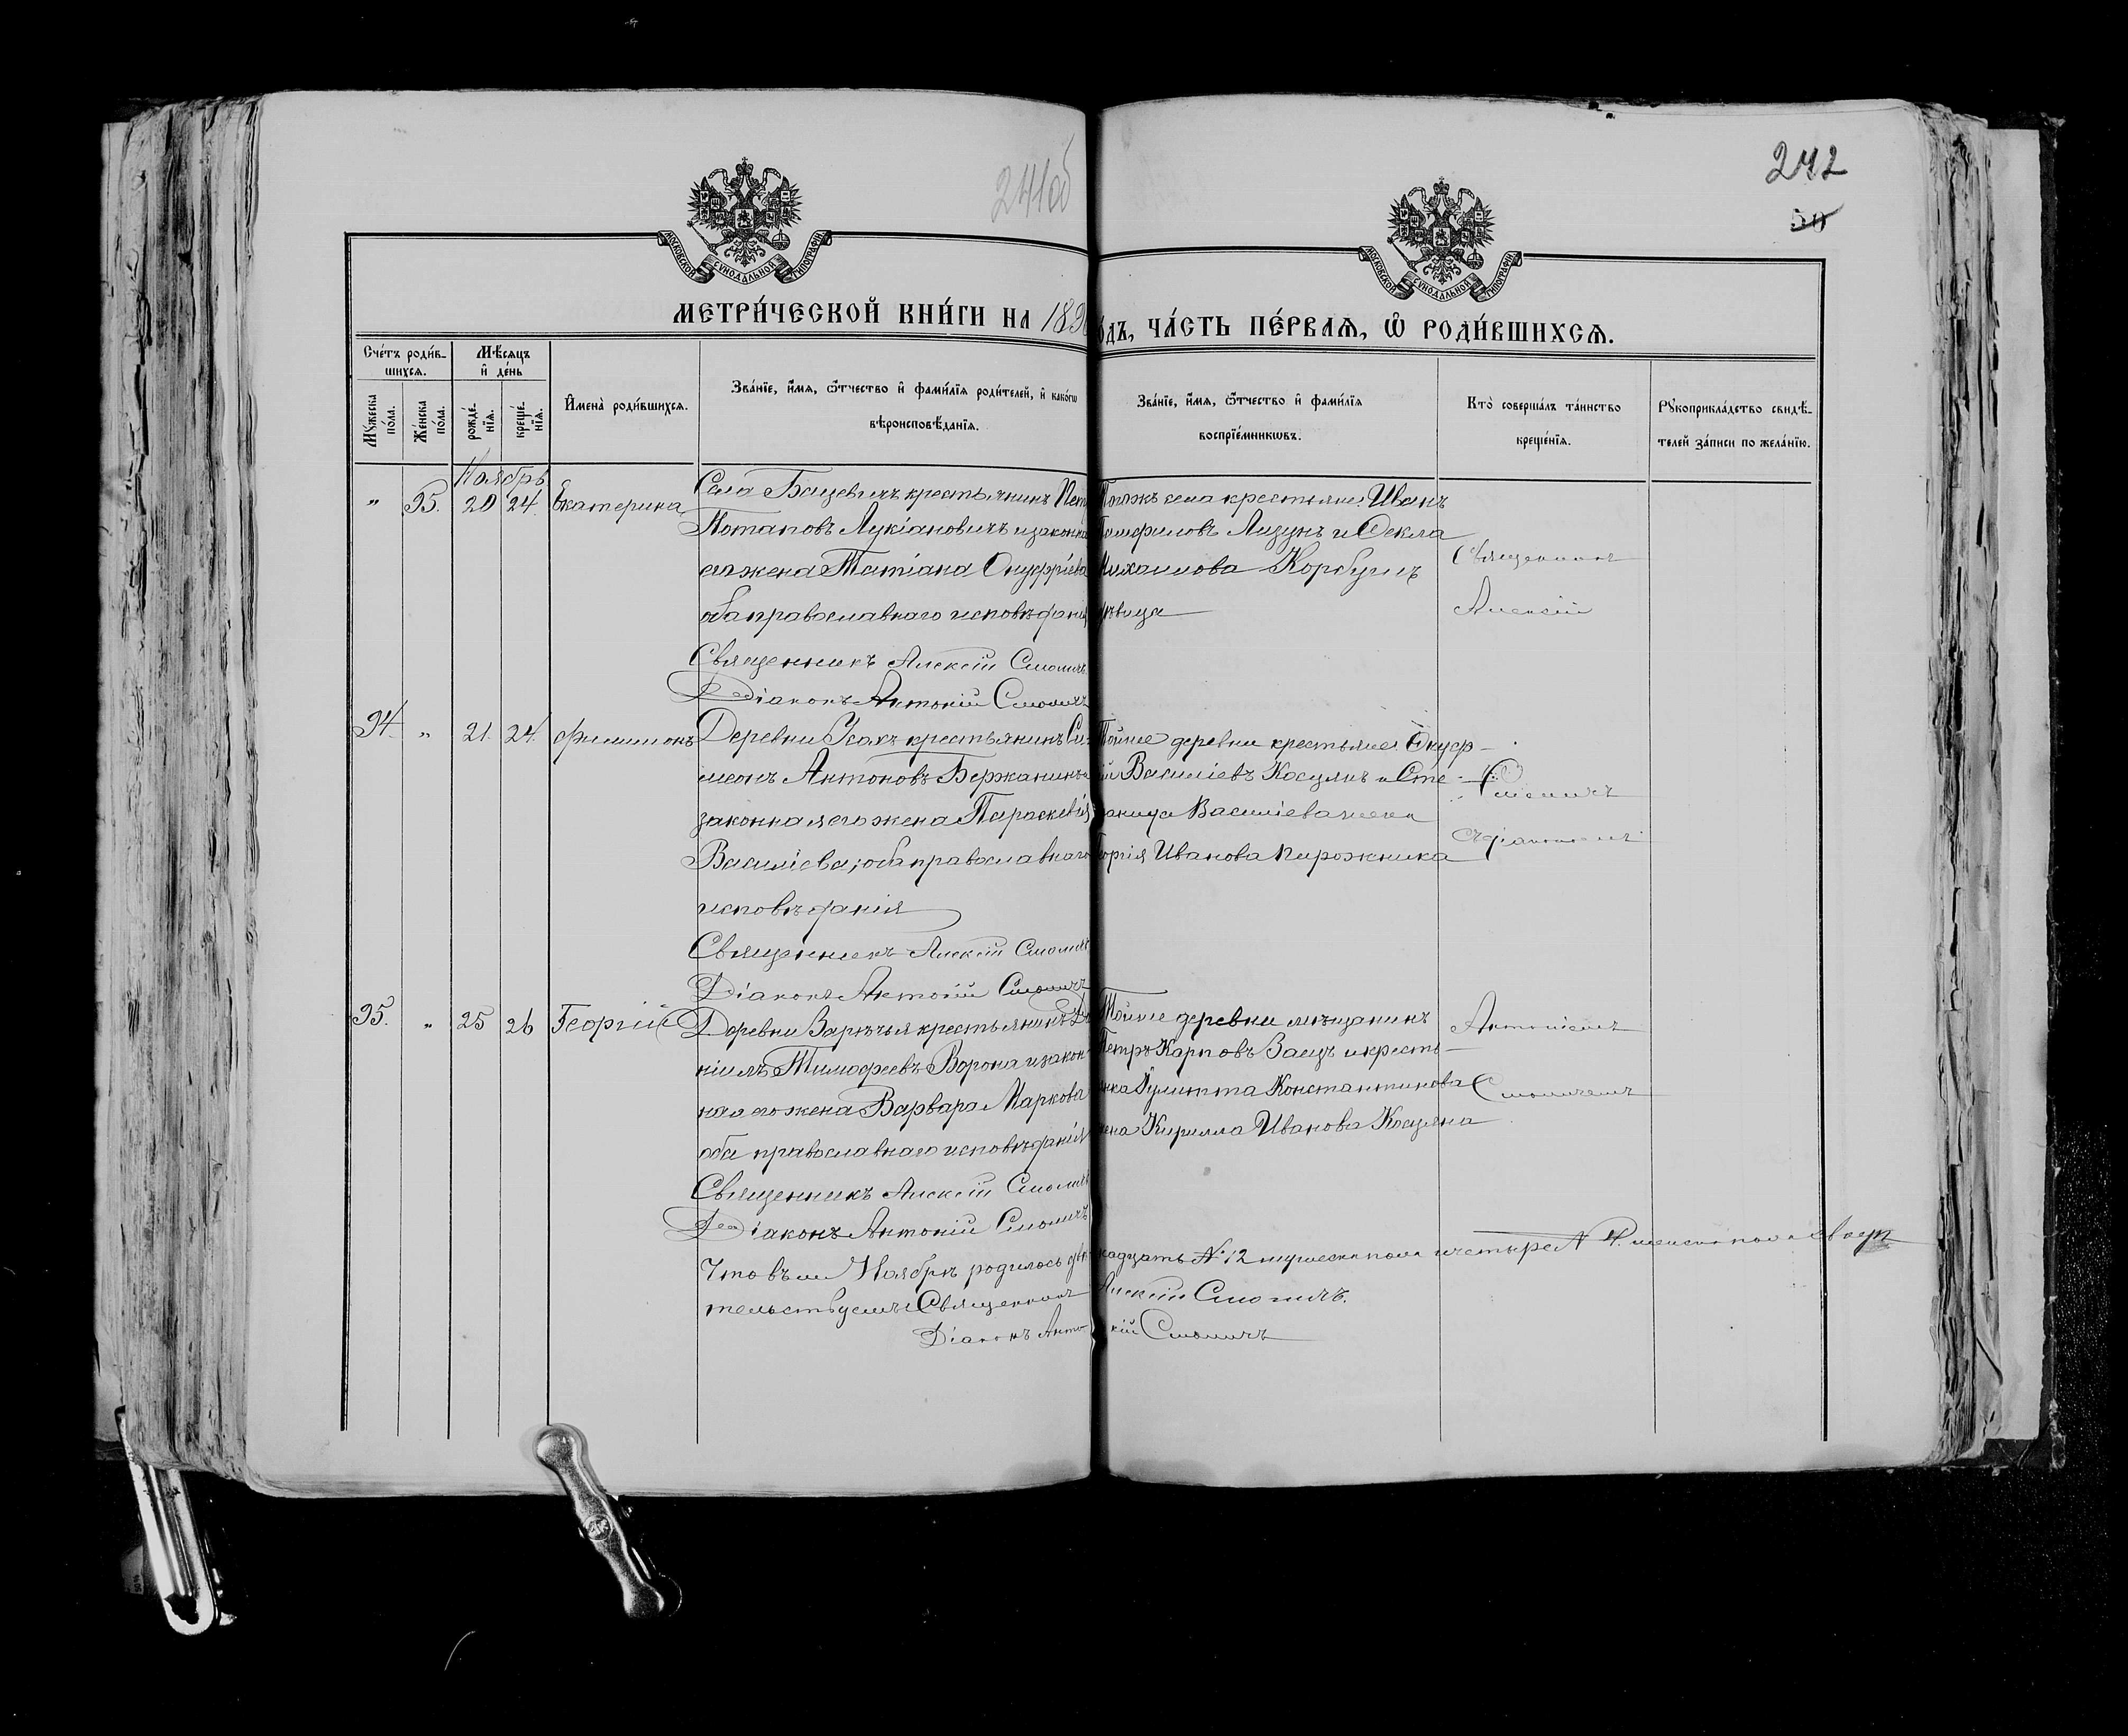 241об
242
50
МОСКОВСКОЙ СУНОДАЛЬНОЙ ТИПОГРАФИИ
МОСКОВСКОЙ СУНОДАЛЬНОЙ ТИПОГРАФИИ
МЕТРИ́ЧЕСКОЙ КНИ́ГИ НА 189
ОДЪ, ЧА́СТЬ ПЕ́РВАѦ, Ѿ РОДИ́ВШИХСѦ.
Сче́тъ роди́в-
шихсѧ.
Мѣ́сѧцъ
и҆ де́нь
Мꙋ́жеска
по́ла.
Же́нска
по́ла.
рожде́-
нїѧ.
креще́-
нїѧ.
И҆мена̀ роди́вшихсѧ.
Зва́нїе, и҆́мѧ, ѻ҆́тчество и҆ фами́лїѧ роди́телей, и҆ како́гѡ
вѣроисповѣ́данїѧ.
Зва́нїе, и҆́мѧ, ѻ҆́тчество и҆ фами́лїѧ
воспрїе́мникѡвъ.
Кто̀ соверша́лъ та́инство
креще́нїѧ.
Рꙋкоприкла́дство свидѣ́-
телей за́писи по жела́нїю.
Ноябрь
„ 95. 20 24. Екатерина
Села Бацевичъ крестьянинъ Пет
Потаповъ Лукіановичъ и законн
его жена Татіана Онуфріева
оба православнаго исповѣданія
Священникъ Алексій Смоличъ
Діаконъ Антоній Смоличъ
Тогожъ села крестьяне: Иванъ
Лизунъ и Ѳекла
Михаилова
дѣвица
Священникъ
Алексій
94. „ 21. 24. Филимонъ
Деревни Усохъ крестьянинъ Си-
меонъ Антоновъ Бержанинъ и
законная его жена Параскевія
Василіева; оба православнаго
исповѣданія
Священникъ Алексій Смоличъ
Діаконъ Антоній Смоличъ
Тойже деревни крестьяне: Онуф-
ій Василіевъ Косцянъ и Сте-
анида Василіева жена
еоргія Иванова Пирожника
Смоличъ
съ діакономъ
95. „ 25 26 Георгій
Деревни Варкѣчья крестьянинъ Да
ніилъ Тимоѳеевъ Ворона и закон-
ная его жена Варвара Маркова
оба православнаго исповѣданія
Священникъ Алексій Смоличъ
Діаконъ Антоній Смоличъ
Тойже деревни мѣщанинъ
Петръ Карповъ Заецъ и кресть-
янка Іулитта Константинова
жена Кирилла Иванова Косцяна
Антоніемъ
Смоличемъ
Что въ м. Ноябрѣ родилось двѣнадцать № 12 мужеска пола и четыре № 4 женска пола свидѣ
тельствуемъ: Священникъ Алексій Смоличъ.
Діаконъ Антоній Смоличъ